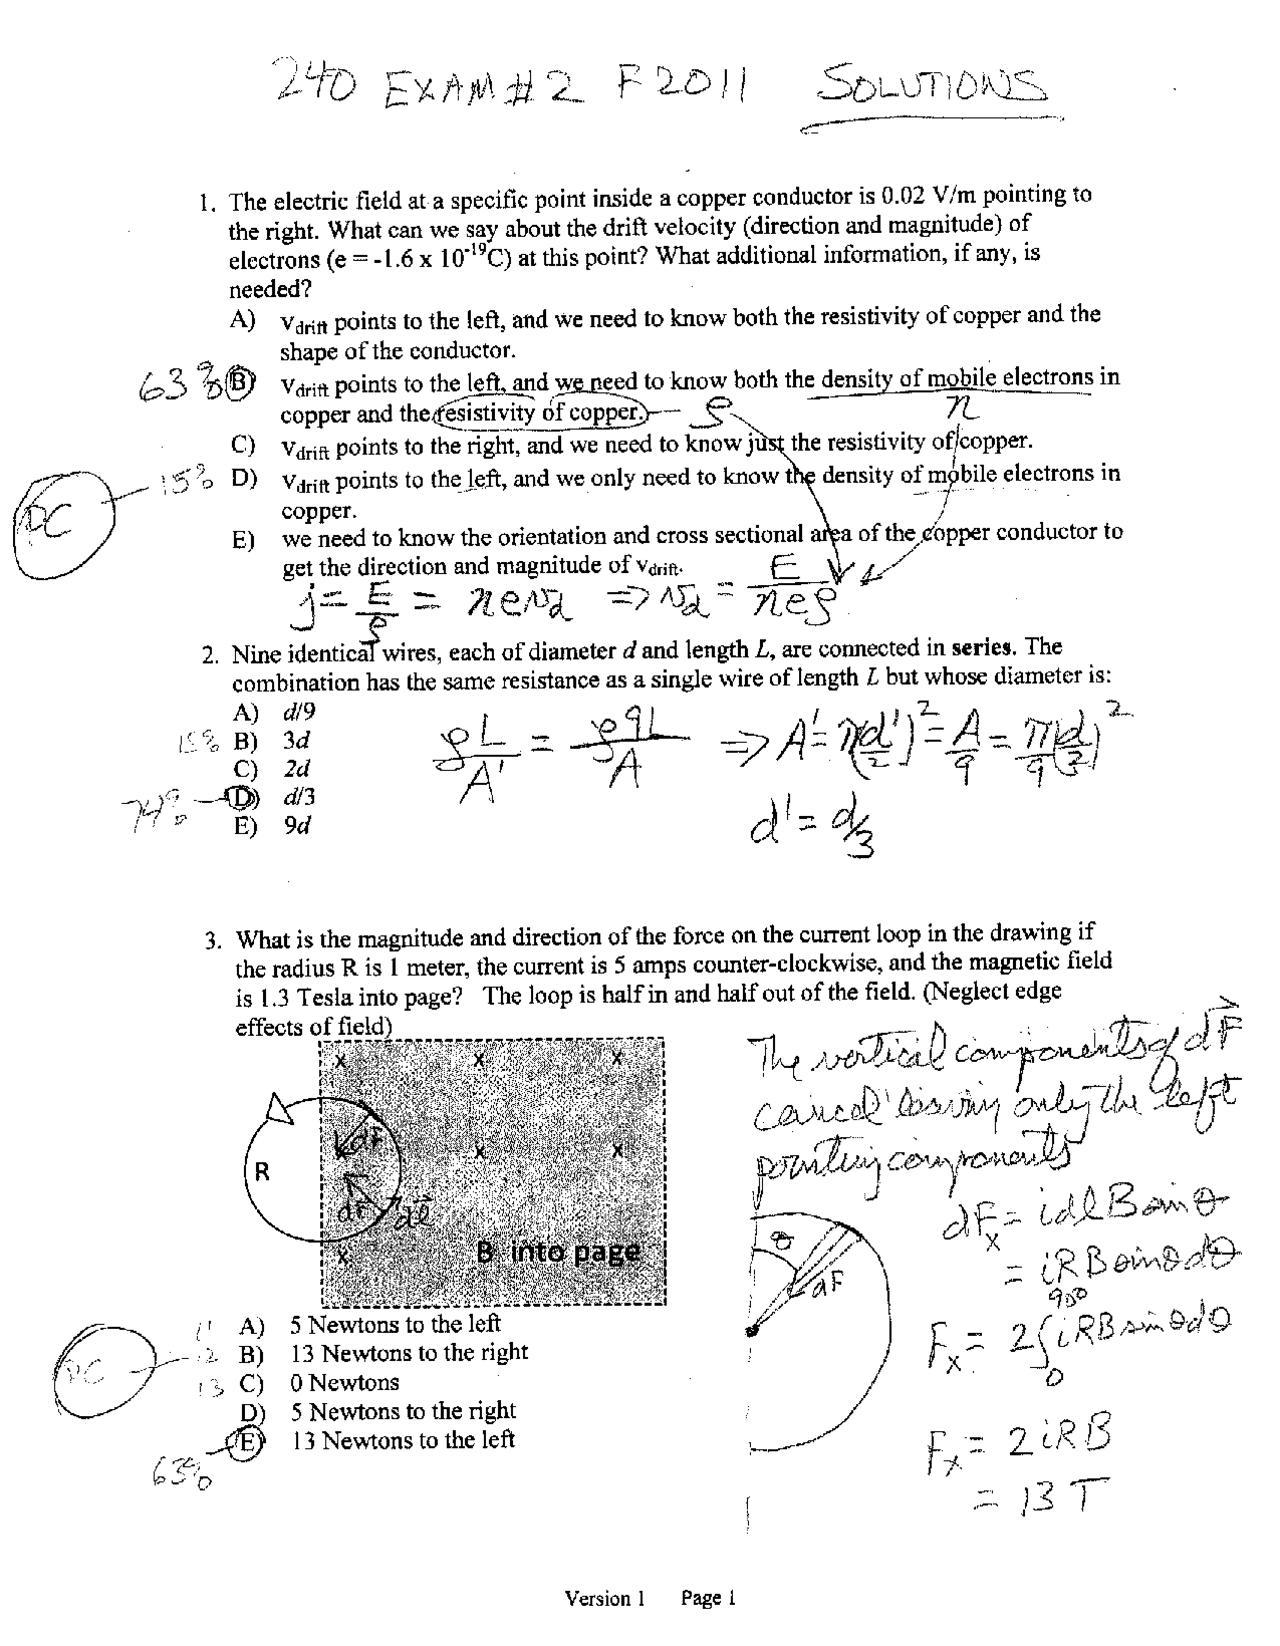 240 EXAM #2 F 2011 SOLUTIONS
1. The electric field at a specific point inside a copper conductor is 0.02 V/m pointing to
the right. What can we say about the drift velocity (direction and magnitude) of
electrons (e = -1.6 x 10⁻¹⁹C) at this point? What additional information, if any, is
needed?
A) vdrift points to the left, and we need to know both the resistivity of copper and the
shape of the conductor.
63% B) vdrift points to the left, and we need to know both the density of mobile electrons in
copper and the resistivity of copper. ρ n
C) vdrift points to the right, and we need to know just the resistivity of copper.
PC 15% D) vdrift points to the left, and we only need to know the density of mobile electrons in
copper.
E) we need to know the orientation and cross sectional area of the copper conductor to
get the direction and magnitude of vdrift.
j = E/ρ = nevd => vd = E/neρ
2. Nine identical wires, each of diameter d and length L, are connected in series. The
combination has the same resistance as a single wire of length L but whose diameter is:
A) d/9
15% B) 3d
C) 2d
74% D) d/3
E) 9d
ρL/A' = ρ9L/A => A' = π(d'/2)² = A/9 = π/9(d/2)²
d' = d/3
3. What is the magnitude and direction of the force on the current loop in the drawing if
the radius R is 1 meter, the current is 5 amps counter-clockwise, and the magnetic field
is 1.3 Tesla into page? The loop is half in and half out of the field. (Neglect edge
effects of field)
x x x
dF
R x x
dF dl
x B into page
The vertical components of dF
cancel leaving only the left
pointing components
dFx = idlB sin θ
= iRB sinθdθ
θ dF
Fx = 2∫₀^90° iRB sinθdθ
Fx = 2iRB
= 13 T
11 A) 5 Newtons to the left
PC 12 B) 13 Newtons to the right
13 C) 0 Newtons
D) 5 Newtons to the right
E) 13 Newtons to the left
63%
Version 1 Page 1